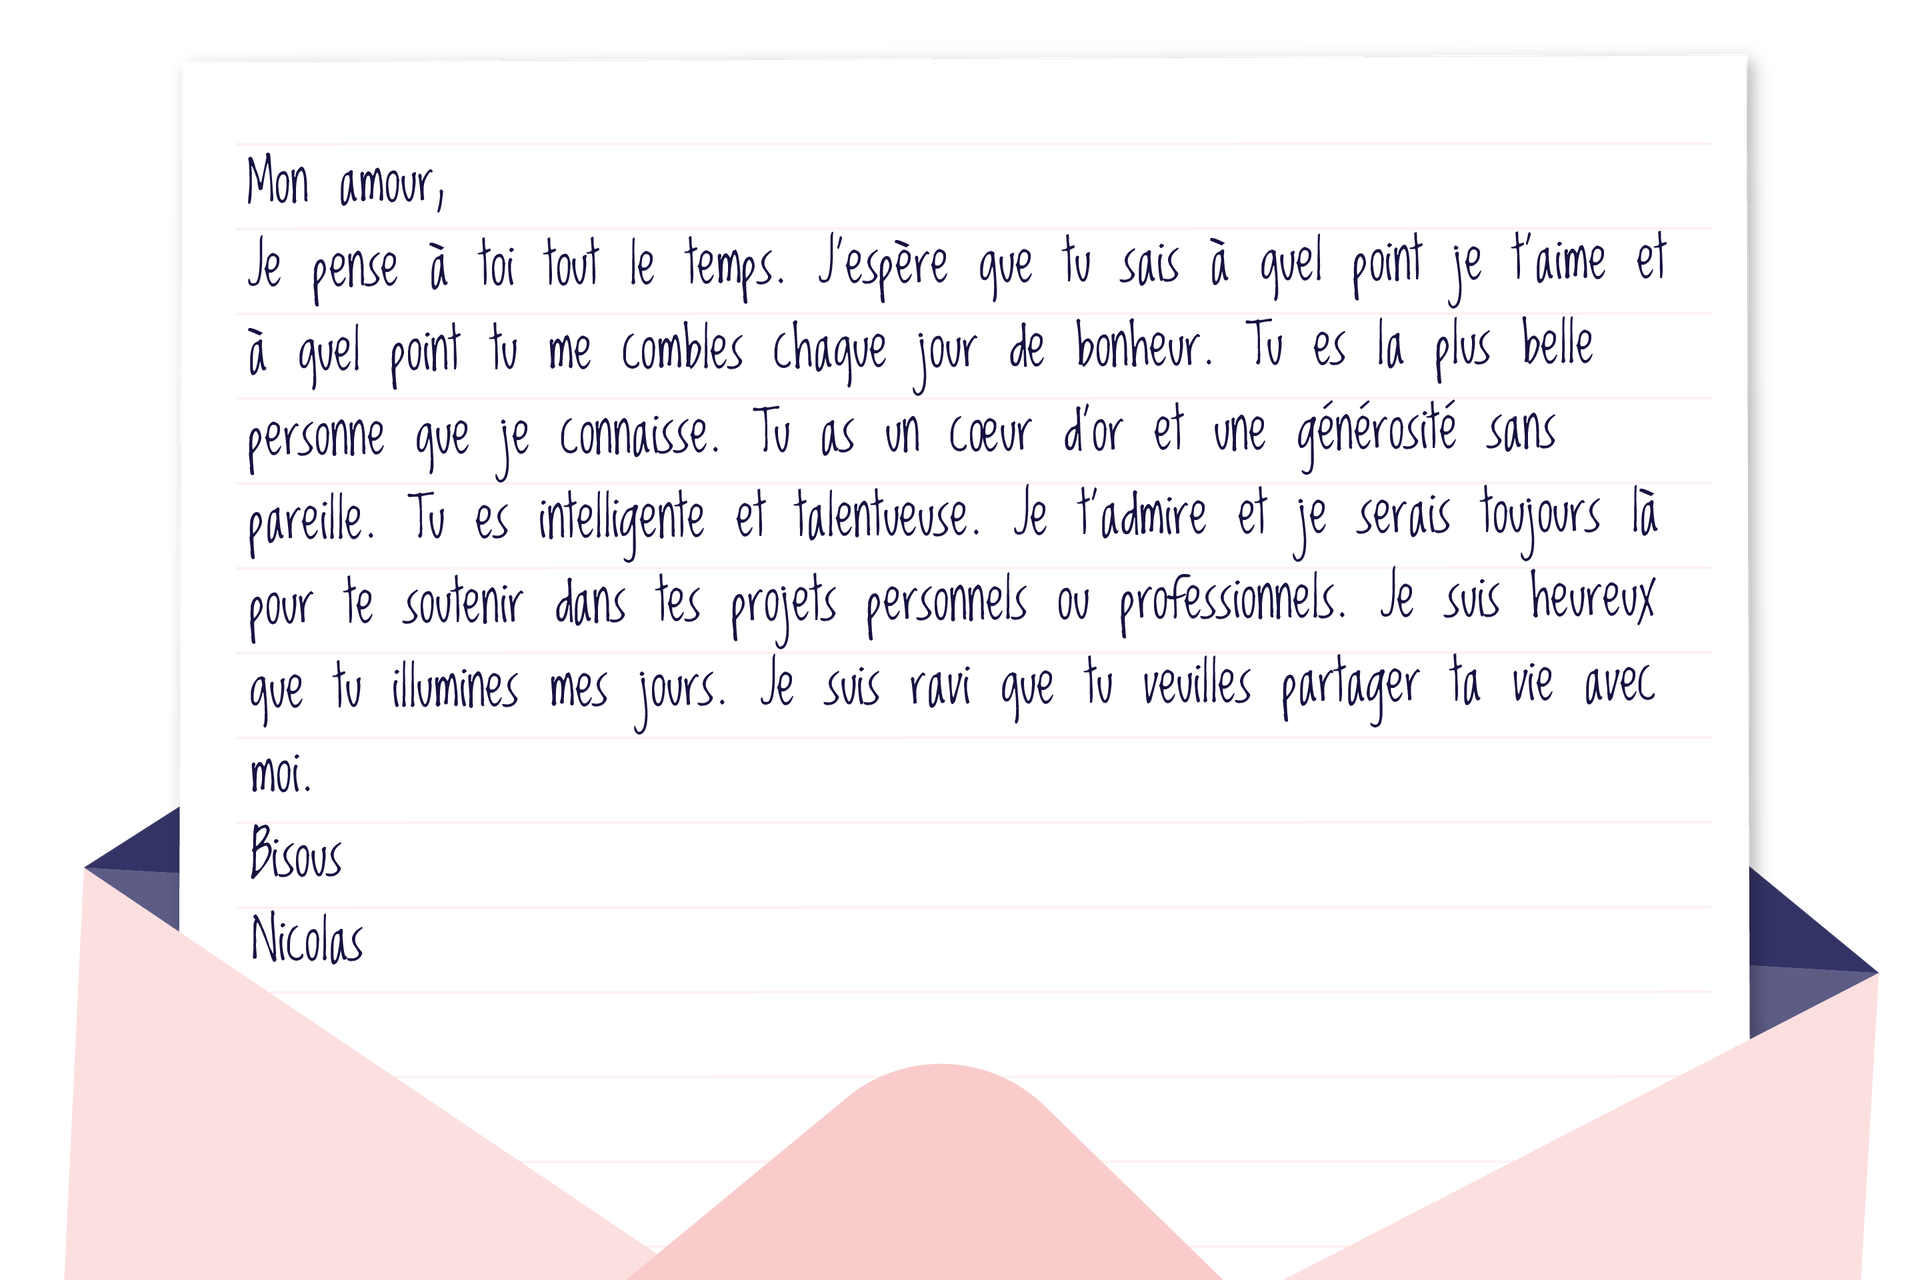 Mon amour,
Je pense à toi tout le temps. J'espère que tu sais à quel point je t'aime et
à quel point tu me combles chaque jour de bonheur. Tu es la plus belle
personne que je connaisse. Tu as un cœur d'or et une générosité sans
pareille. Tu es intelligente et talentueuse. Je t'admire et je serais toujours là
pour te soutenir dans tes projets personnels ou professionnels. Je suis heureux
que tu illumines mes jours. Je suis ravi que tu veuilles partager ta vie avec
moi.
Bisous
Nicolas